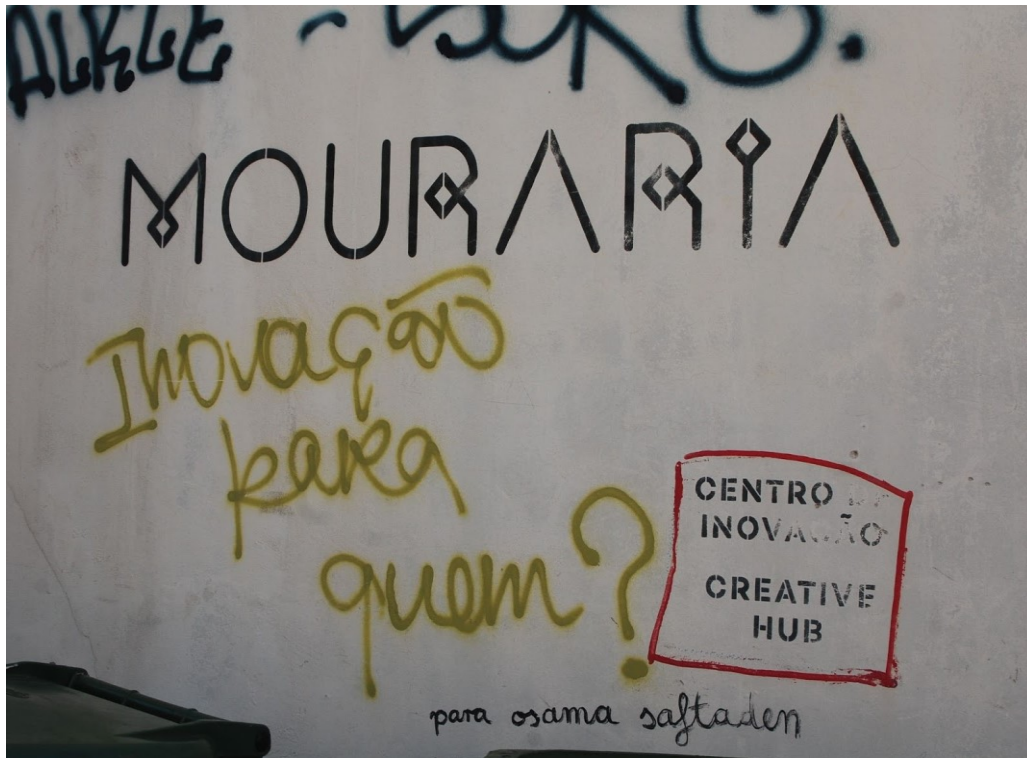 MOURARIA
Inovação
para
quem?
CENTRO
INOVAÇÃO
CREATIVE
HUB
para osama saftaden